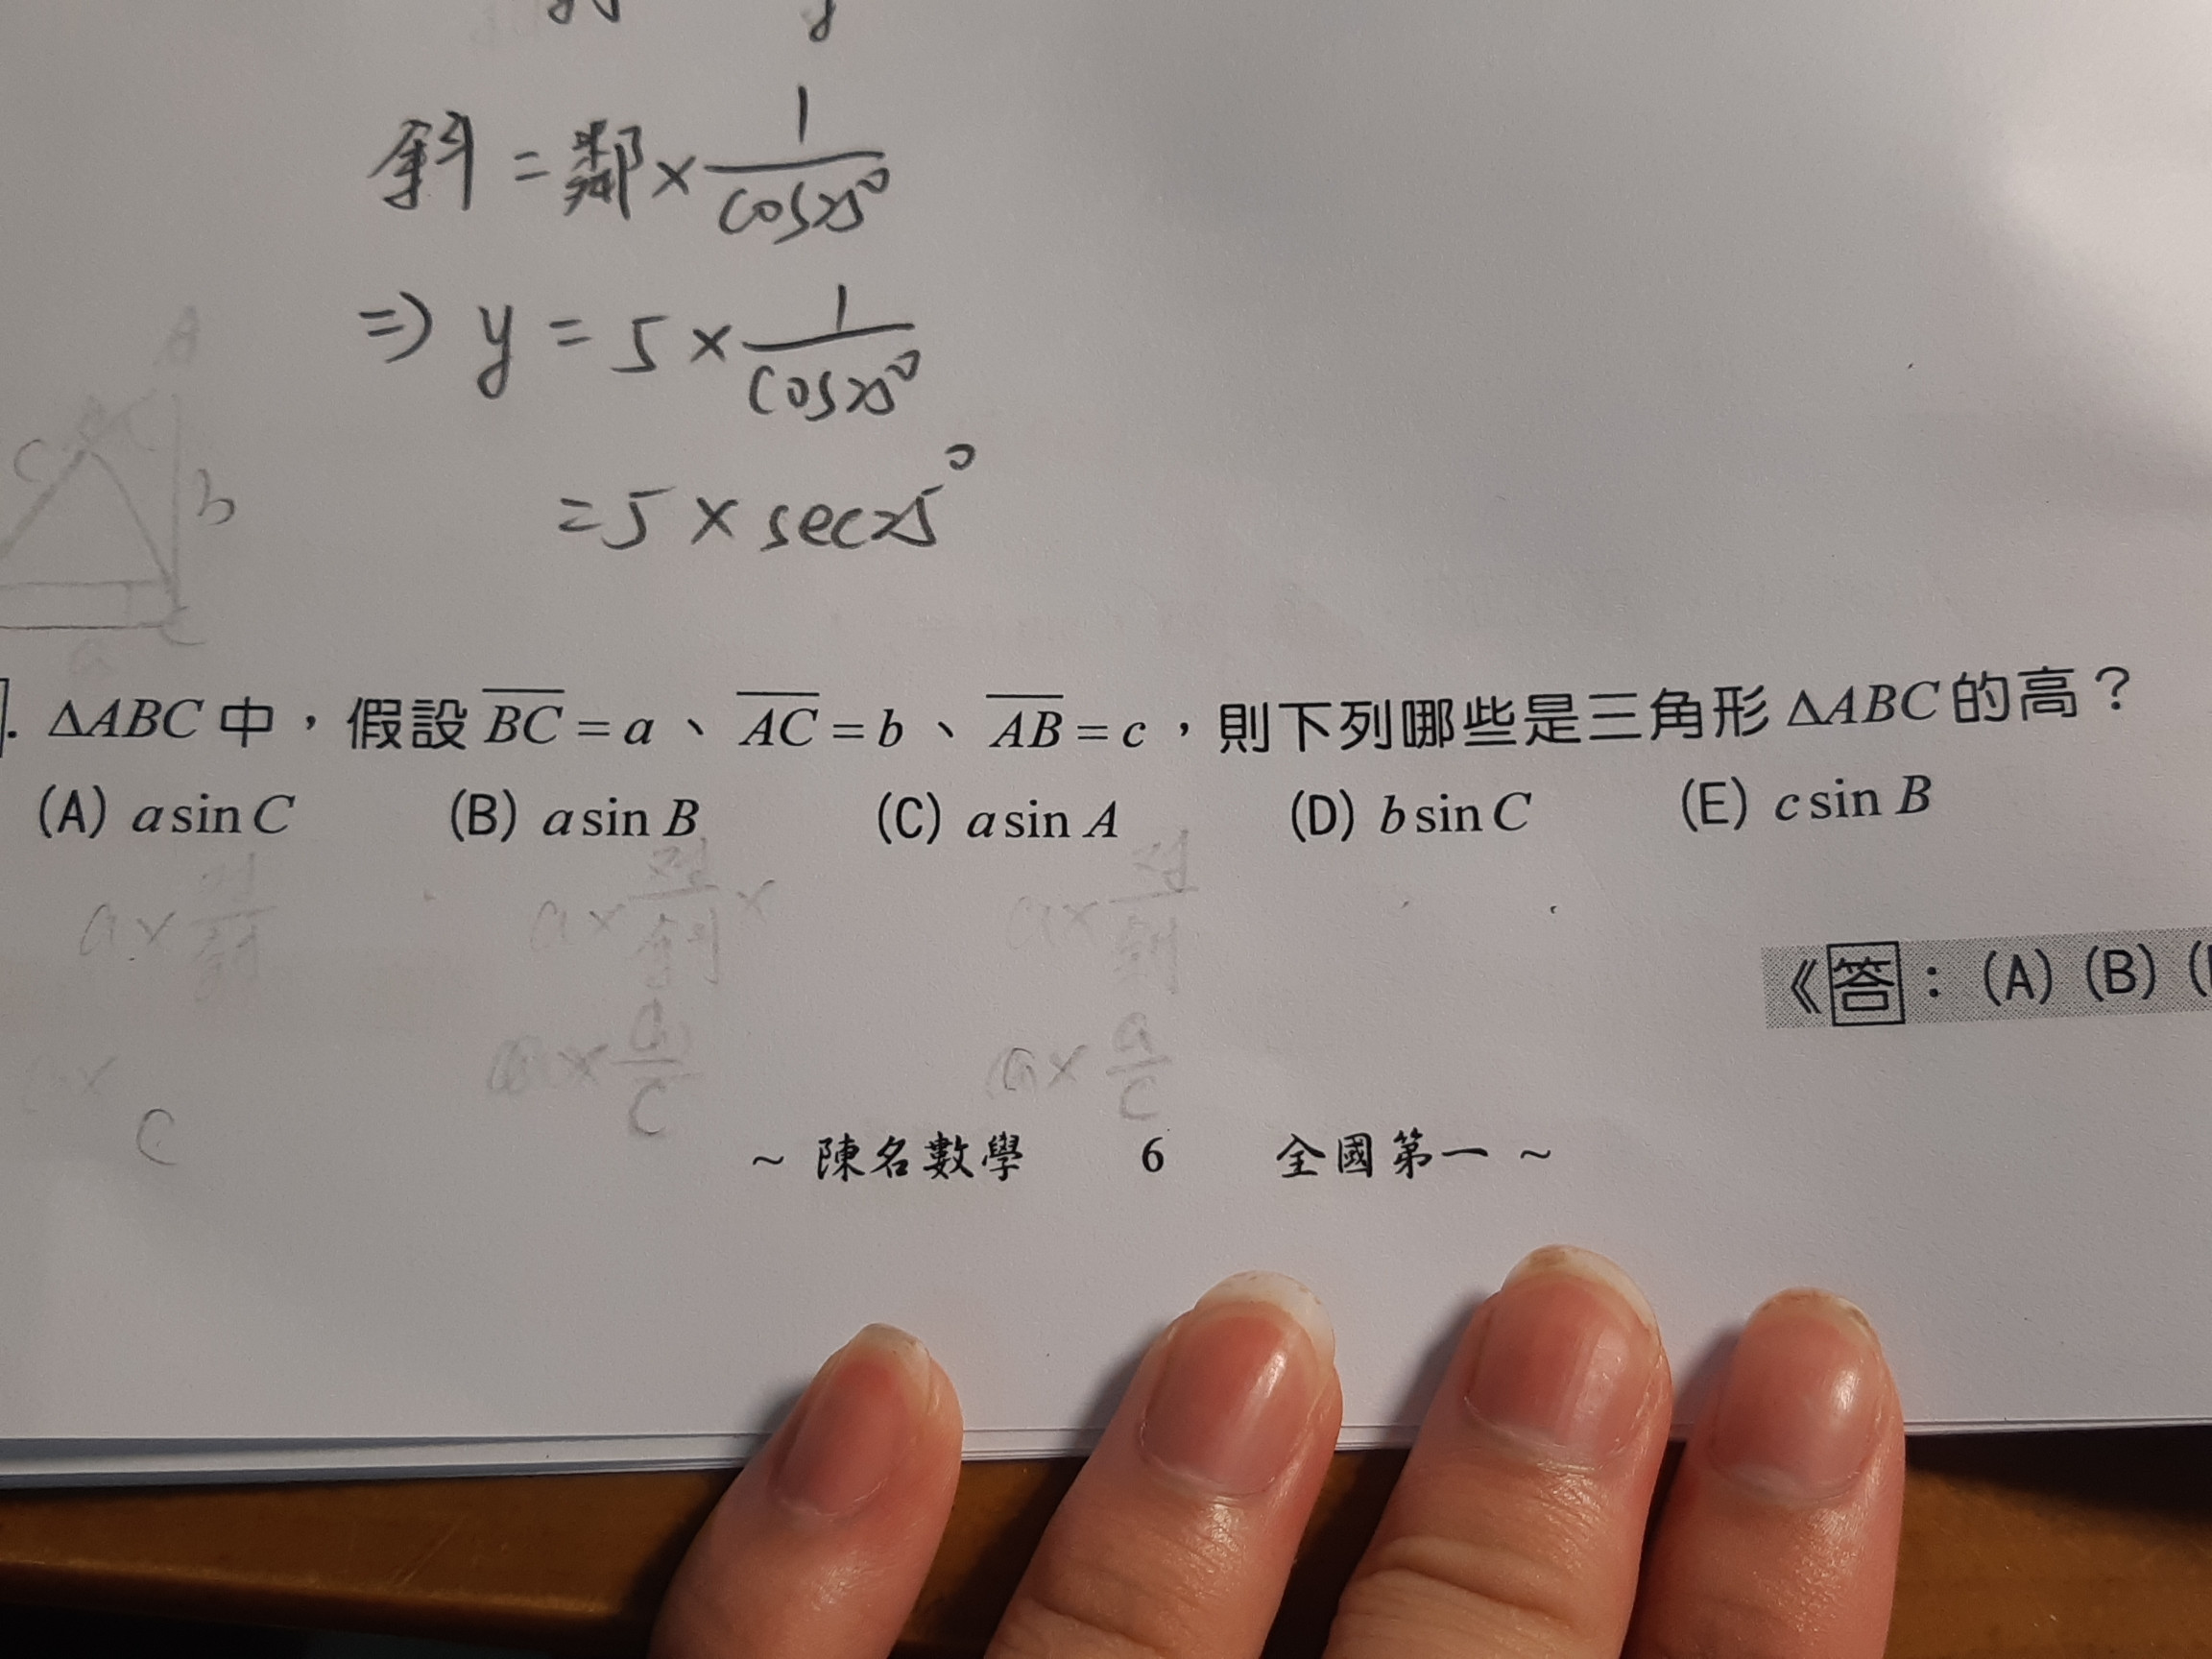 斜 = 鄰 × 1/cos25°
⇒ y = 5 × 1/cos25°
= 5 × sec25°
A
C
b
C
a
. ΔABC 中，假設 \overline{BC} = a、\overline{AC} = b、\overline{AB} = c，則下列哪些是三角形 ΔABC 的高？
(A) a sin C (B) a sin B (C) a sin A (D) b sin C (E) c sin B
a × 對/斜 a × 對/斜 × a × 對/斜
《答：(A) (B) (
a × a/c
C
～ 陳名數學 6 全國第一 ～